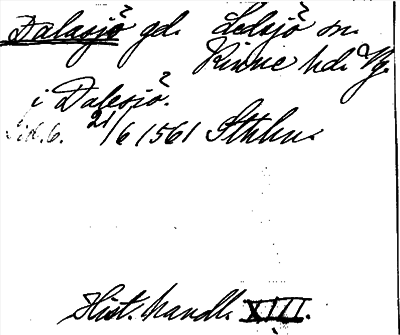 Dalasjö? gd. Lelsjö? sn.
Kinne hd. Vg.
i Dalesiö?.
21/6 1561 Sthlm.
Hist. handl. XIII.